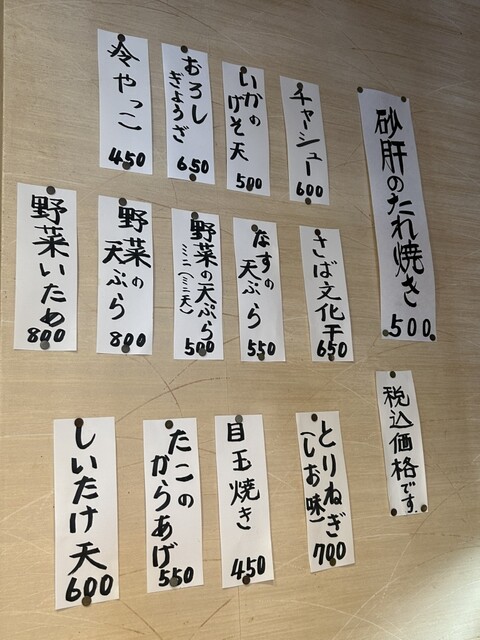 砂肝のたれ焼き
500
チャーシュー
600
いかの
げそ天
500
おろし
ぎょうざ
650
冷やっこ
450
さば文化干
650
なすの
天ぷら
550
野菜の天ぷら
ミニ(ミニ天)
500
野菜の
天ぷら
800
野菜いため
800
税込価格です
とりねぎ
(しお味)
700
目玉焼き
450
たこの
からあげ
550
しいたけ天
600